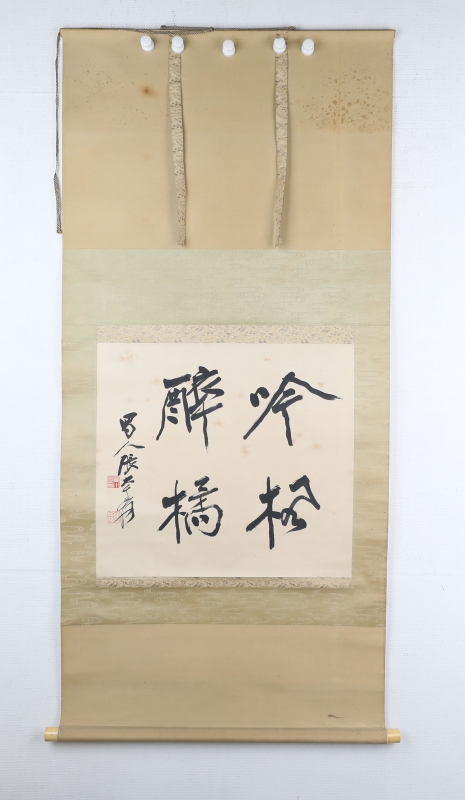 吟松
醉橘
蜀人張大千爰